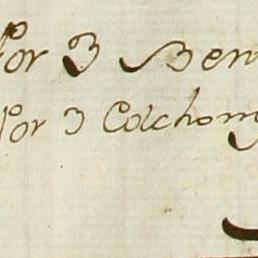 Por 3 Ben
Por 3 Colchon